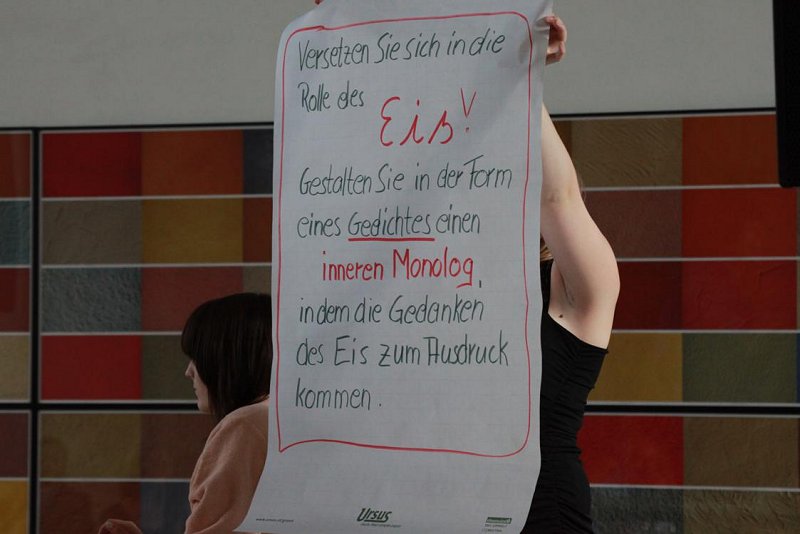 Versetzen Sie sich in die
Rolle des
Eis!
Gestalten Sie in der Form
eines Gedichtes einen
inneren Monolog,
in dem die Gedanken
des Eis zum Ausdruck
kommen.
Ursus